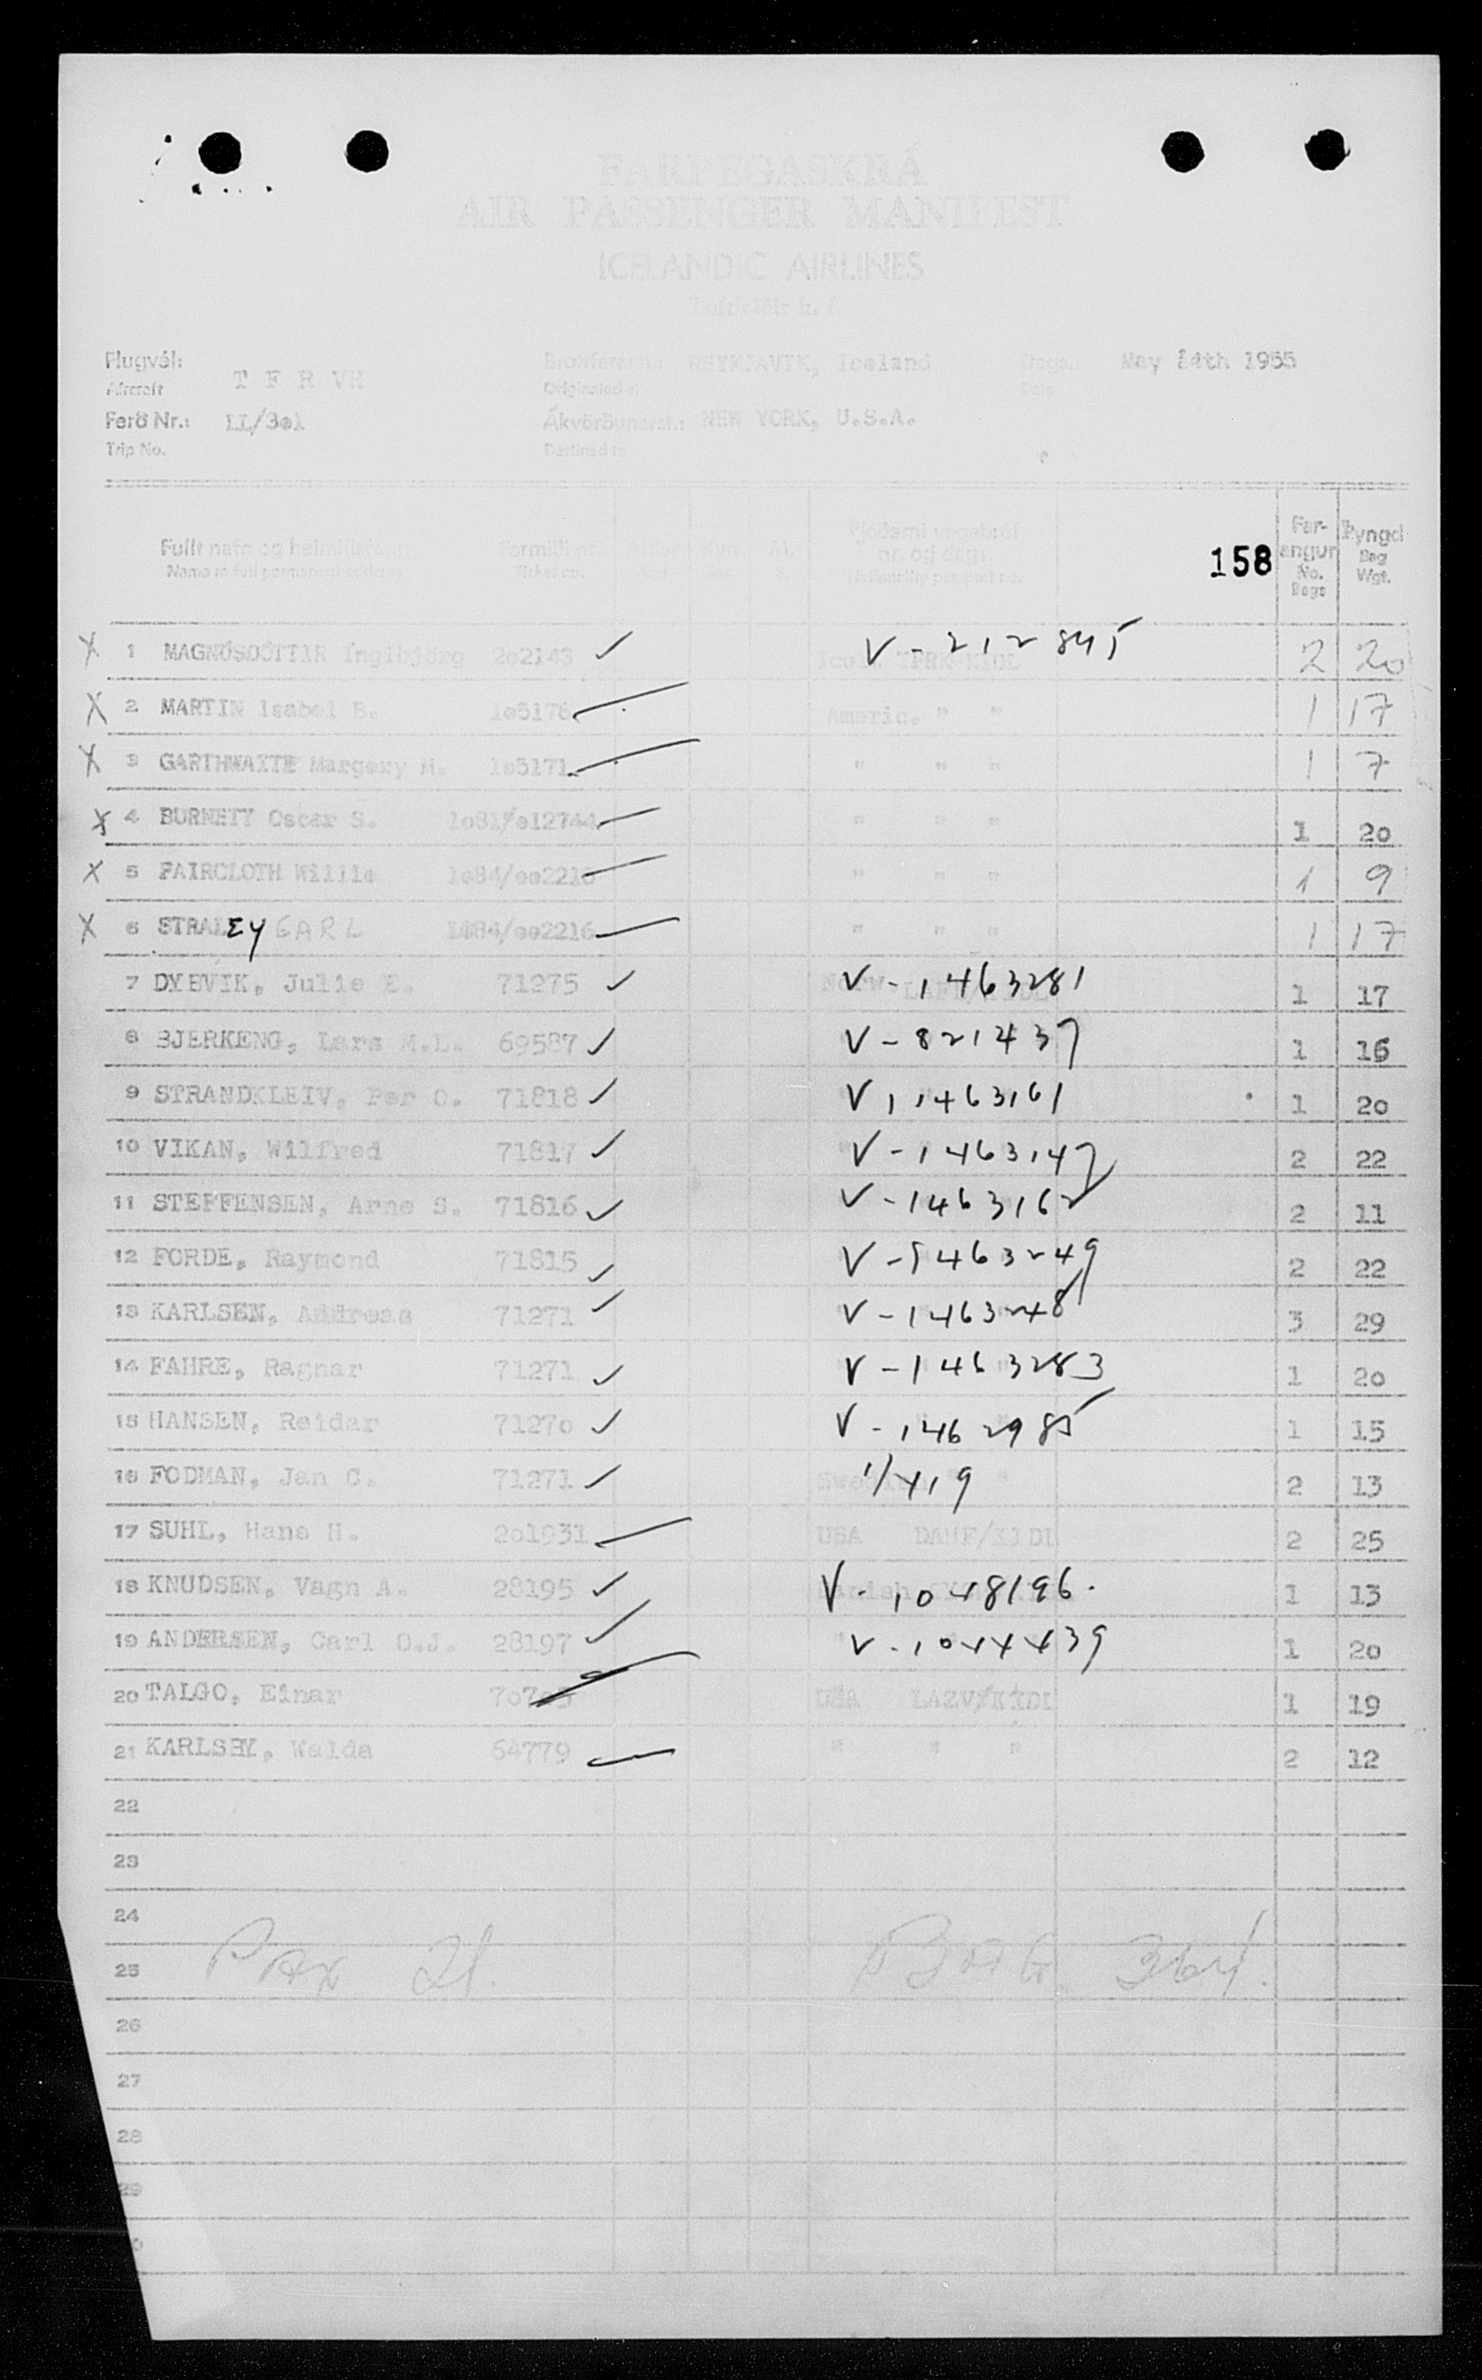 FARÞEGASKRÁ
AIR PASSENGER MANIFEST
ICELANDIC AIRLINES
Loftleiðir h.f.
Flugvél: T F R VH Brottfararst.: REYKJAVIK, Iceland Dags.: May 24th 1955
Aircraft Originated at Date
Ferð Nr.: LL/3o1 Ákvörðunarst.: NEW YORK, U.S.A.
Trip No. Destined to
Fullt nafn og heimilisfang Farmiði nr. Þjóðerni vegabréf nr. og dags. 158 Far-angur No. Bags Þyngd Bag Wgt.
Name in full permanent address Ticket no.
X 1 MAGNÚSDÓTTIR Ingibjörg 2o2143 ✓ V-212845 2 20
X 2 MARTIN Isabel B. 1o5176 Americ. " " 1 17
X 3 GARTHWAITE Margery M. 1o5171 " " " 1 7
X 4 BURNETT Oscar S. 1o81/o12744 " " " 1 2o
X 5 FAIRCLOTH Willie 1o84/oo2216 " " " 1 9
X 6 STRALEY EARL 1o84/oo2216 " " " 1 17
7 DYBVIK, Julie E. 71275 ✓ V-1463281 1 17
8 BJERKENG, Lars M.L. 69587 ✓ V-821437 1 16
9 STRANDKLEIV, Per O. 71818 ✓ V 11463161 1 2o
10 VIKAN, Wilfred 71817 ✓ V-1463147 2 22
11 STEFFENSEN, Arne S. 71816 ✓ V-1463162 2 11
12 FORDE, Raymond 71815 ✓ V-1463249 2 22
13 KARLSEN, Andreas 71271 ✓ V-1463248 3 29
14 FAHRE, Ragnar 71271 ✓ V-1463283 1 2o
15 HANSEN, Reidar 7127o ✓ V-1462985 1 15
16 FODMAN, Jan C. 71271 ✓ 1/419 2 13
17 SUHL, Hans H. 2o1931 USA DAHF/KIDL 2 25
18 KNUDSEN, Vagn A. 28195 ✓ Danish V-1048196. 1 13
19 ANDERSEN, Carl O.J. 28197 ✓ V-1044439 1 2o
20 TALGO, Einar USA LAZV/KIDL 1 19
21 KARLSBY, Walda 64779 " " " 2 12
22
23
24
25 Pax 21. BAG. 364.
26
27
28
29